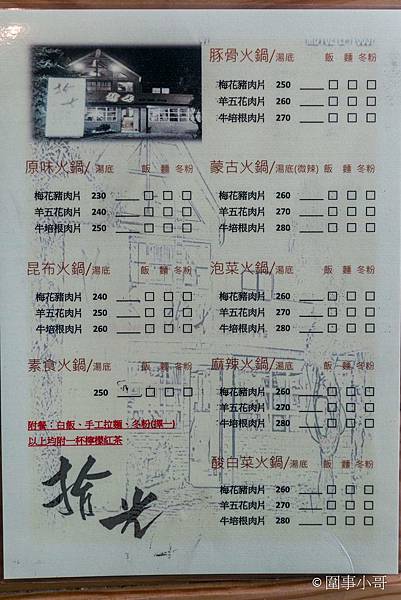 豚骨火鍋/湯底 飯 麵 冬粉
梅花豬肉片 250 ____ □ □ □
羊五花肉片 260 ____ □ □ □
牛培根肉片 270 ____ □ □ □
原味火鍋/湯底 飯 麵 冬粉
梅花豬肉片 230 ____ □ □ □
羊五花肉片 240 ____ □ □ □
牛培根肉片 250 ____ □ □ □
蒙古火鍋/湯底(微辣) 飯 麵 冬粉
梅花豬肉片 260 ____ □ □ □
羊五花肉片 270 ____ □ □ □
牛培根肉片 280 ____ □ □ □
昆布火鍋/湯底 飯 麵 冬粉
梅花豬肉片 240 ____ □ □ □
羊五花肉片 250 ____ □ □ □
牛培根肉片 260 ____ □ □ □
泡菜火鍋/湯底 飯 麵 冬粉
梅花豬肉片 260 ____ □ □ □
羊五花肉片 270 ____ □ □ □
牛培根肉片 280 ____ □ □ □
素食火鍋/湯底 飯 麵 冬粉
250 ____ □ □ □
麻辣火鍋/湯底 飯 麵 冬粉
梅花豬肉片 260 ____ □ □ □
羊五花肉片 270 ____ □ □ □
牛培根肉片 280 ____ □ □ □
附餐：白飯、手工拉麵、冬粉(擇一)
以上均附一杯檸檬紅茶
酸白菜火鍋/湯底 飯 麵 冬粉
梅花豬肉片 260 ____ □ □ □
羊五花肉片 270 ____ □ □ □
牛培根肉片 280 ____ □ □ □
拾光
©圍事小哥